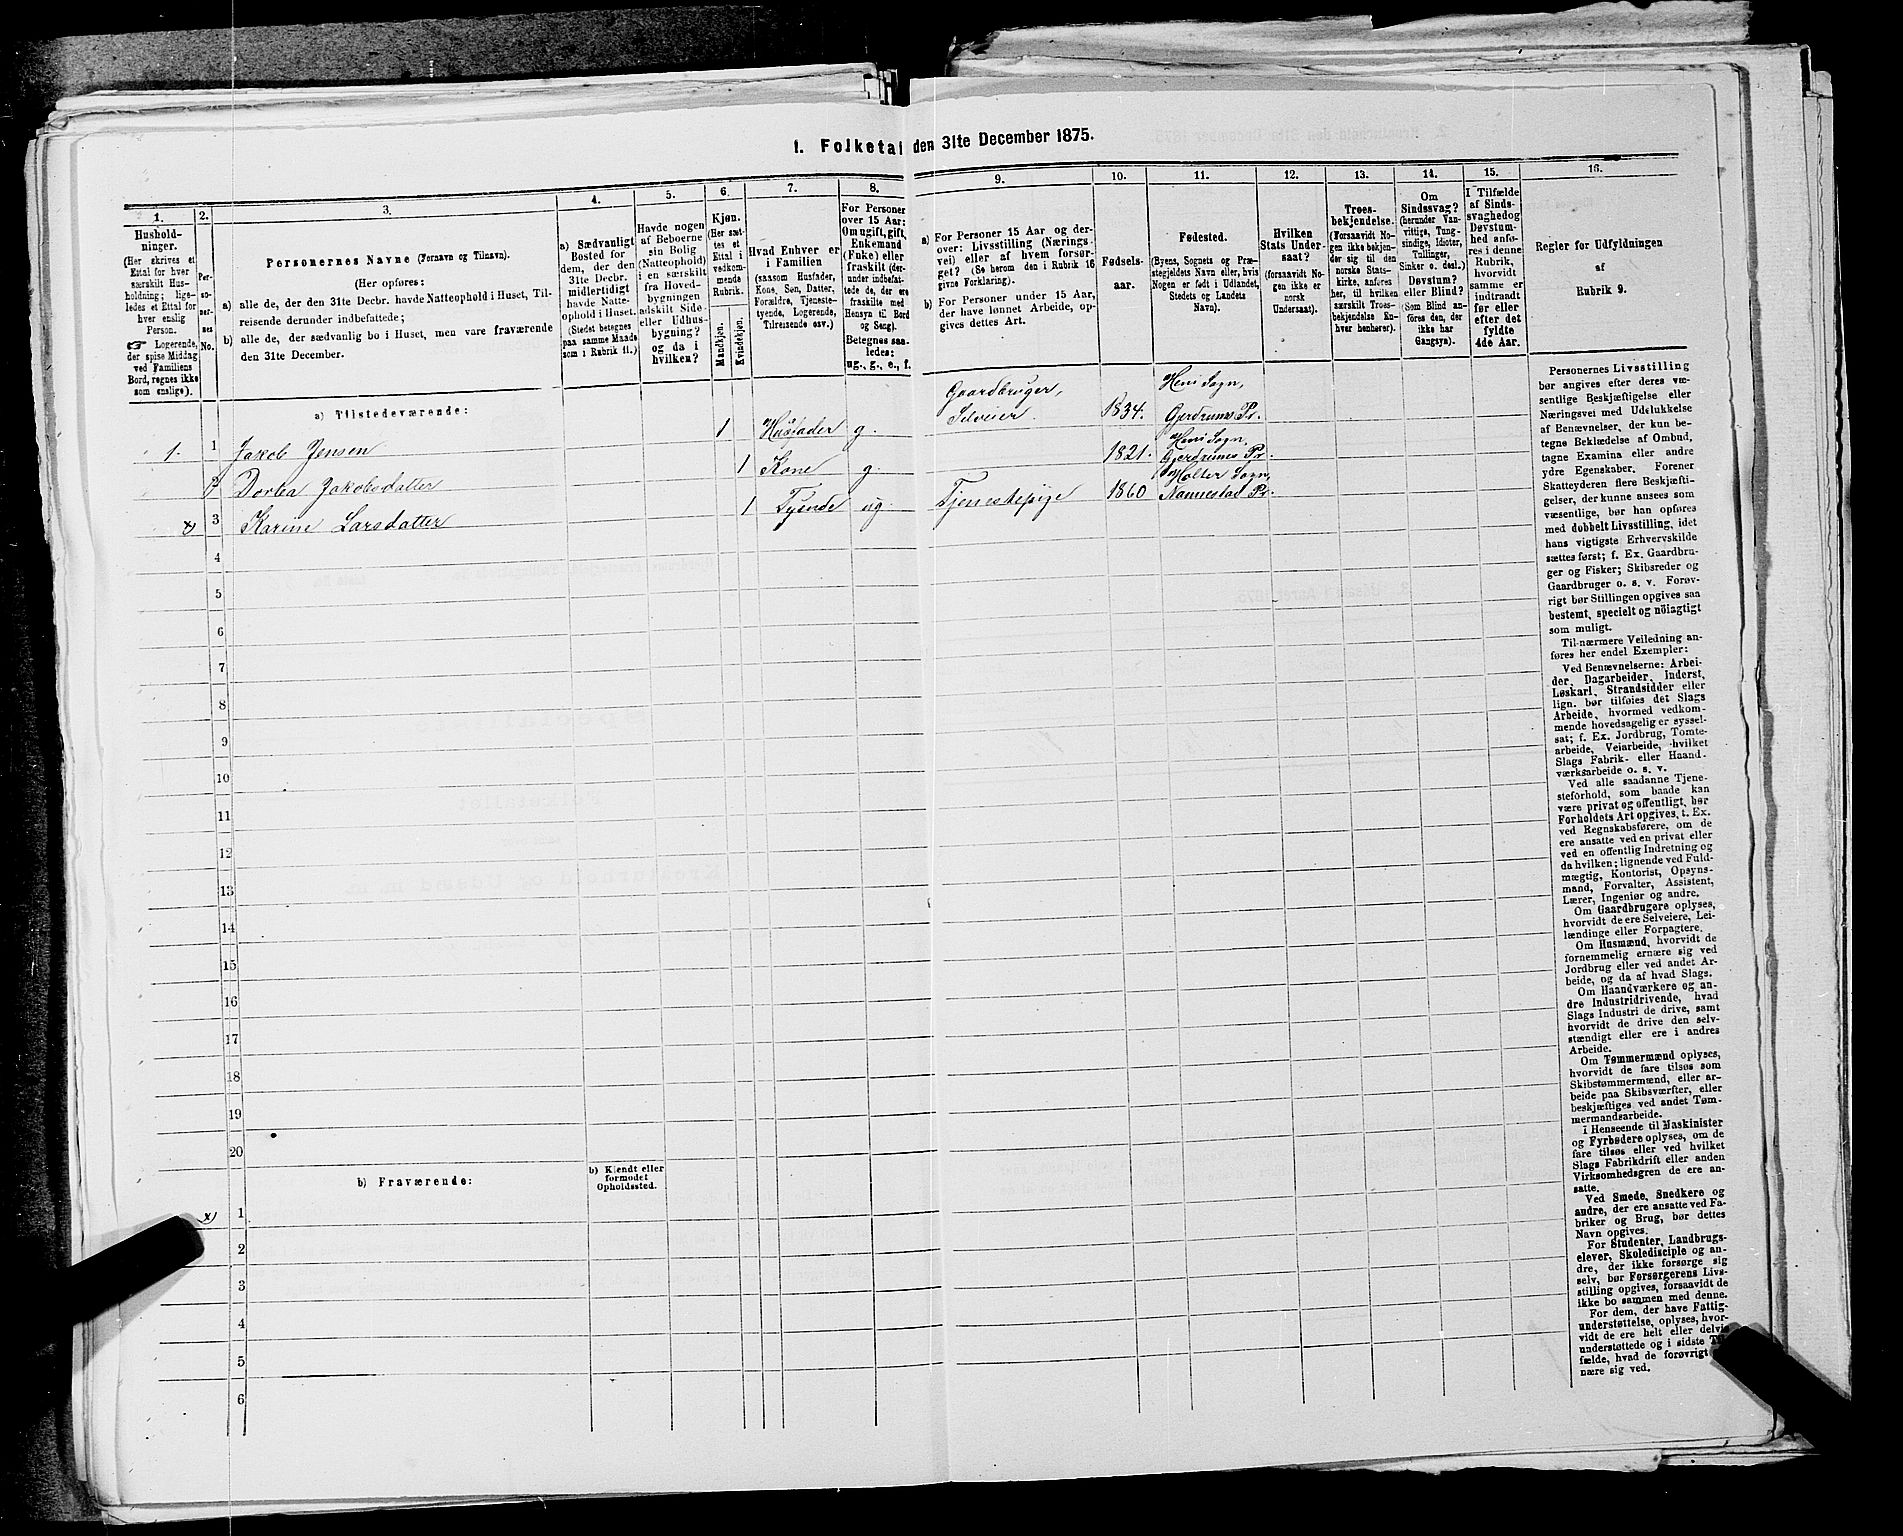 1. Folketal den 31te December 1875.
1.
2.
3.
4.
5.
6.
7.
8.
9.
10.
11.
12.
13.
14.
15.
16.
Hushold-
ninger.
(Her skrives et
Ettal for hver
særskilt Hus-
holdning; lige-
ledes et Ettal for
hver enslig
Person.
☞ Logerende,
der spise Middag
ved Familiens
Bord, regnes ikke
som enslige).
Per-
so-
ner-
nes
No.
Personernes Navne (Fornavn og Tilnavn).
(Her opføres:
a) alle de, der den 31te Decbr. havde Natteophold i Huset, Til-
reisende derunder indbefattede;
b) alle de, der sædvanlig bo i Huset, men vare fraværende
den 31te December.
a) Sædvanligt
Bosted for
dem, der den
31te Decbr.
midlertidigt
havde Natte-
ophold i Huset.
(Stedet betegnes
paa samme Maade
som i Rubrik 11.)
Havde nogen
af Beboerne
sin Bolig
(Natteophold)
i en særskilt
fra Hoved-
bygningen
adskilt Side-
eller Udhus-
bygning?
og da i
hvilken?
Kjøn.
(Her sæt-
tes et
Ettal i
vedkom-
mende
Rubrik.
Mandkjøn.
Kvindekjøn.
Hvad Enhver er
i Familien
(saasom Husfader,
Kone, Søn, Datter,
Forældre, Tjeneste-
tyende, Logerende,
Tilreisende osv.)
For Personer
over 15 Aar:
Om ugift, gift,
Enkemand
(Enke) eller
fraskilt (der-
under indbefat-
tede de, der ere
fraskilte med
Hensyn til Bord
og Seng).
Betegnes saa-
ledes:
ug., g., e., f.
a) For Personer 15 Aar og der-
over: Livsstilling (Nærings-
vei) eller af hvem forsør-
get? (Se herom den i Rubrik 16
givne Forklaring).
b) For Personer under 15 Aar,
der have lønnet Arbeide, op-
gives dettes Art.
Fødsels-
aar.
Fødested.
(Byens, Sognets og Præ-
stegjeldets Navn eller, hvis
Nogen er født i Udlandet,
Stedets og Landets
Navn).
Hvilken
Stats Under-
saat?
(forsaavidt No-
gen ikke er
norsk
Undersaat).
Troes-
bekjendelse.
(Forsaavidt No-
gen ikke bekjen-
der sig til den
norske Stats-
kirke, anføres
her, til hvilken
særskilt Troes-
bekjendelse En-
hver henhører).
Om
Sindssvag?
(herunder Van-
vittige, Tung-
sindige, Idioter,
Tullinger,
Sinker o. desl.)
Døvstum?
eller Blind?
(Som Blind an-
føres den, der
ikke har
Gangsyn).
I Tilfælde
af Sinds-
svaghed og
Døvstum-
hed anfø-
res i denne
Rubrik,
hvorvidt
samme er
indtraadt
før eller
efter det
fyldte
4de Aar.
Regler for Udfyldningen
af
Rubrik 9.
a) Tilstedeværende:
1. 1 Jakob Jensen 1 Husfader g. Gaardbruger, Selveier. 1834. Heni Sogn, Gjerdrums Pr.
2 Dorthea Jakobsdatter 1 Kone g. 1821. Heni Sogn, Gjerdrums Pr.
x) 3 Karine Larsdatter 1 Tyende ug. Tjenestepige 1860 Holter Sogn, Nannestad Pr.
4
5
6
7
8
9
10
11
12
13
14
15
16
17
18
19
20
b) Fraværende:
b) Kjendt eller
formodet
Opholdssted.
x) 1
2
3
4
5
6
Personernes Livsstilling
bør angives efter deres væ-
sentlige Beskjæftigelse eller
Næringsvei med Udelukkelse
af Benævnelser, der kun be-
tegne Beklædelse af Ombud,
tagne Examina eller andre
ydre Egenskaber. Forener
Skatteyderen flere Beskjæfti-
gelser, der kunne ansees som
væsentlige, bør han opføres
med dobbelt Livsstilling, idet
hans vigtigste Erhvervskilde
sættes først; f. Ex. Gaardbru-
ger og Fisker; Skibsreder og
Gaardbruger o. s. v. Forøv-
rigt bør Stillingen opgives saa
bestemt, specielt og nöiagtigt
som muligt.
Til nærmere Veiledning an-
føres her endel Exempler:
Ved Benævnelserne: Arbei-
der, Dagarbeider, Inderst,
Løskarl, Strandsidder eller
lign. bør tilføies det Slags
Arbeide, hvormed vedkom-
mende hovedsagelig er syssel-
sat; f. Ex. Jordbrug, Tomte-
arbeide, Veiarbeide, hvilket
Slags Fabrik- eller Haand-
værksarbeide o. s. v.
Ved alle saadanne Tjene-
steforhold, som baade kan
være privat og offentligt, bør
Forholdets Art opgives, t. Ex.
ved Regnskabsførere, om de
ere ansatte ved en privat eller
ved en offentlig Indretning og
da hvilken; lignende ved Fuld-
mægtig, Kontorist, Opsyns-
mand, Forvalter, Assistent,
Lærer, Ingeniør og andre.
Om Gaardbrugere oplyses,
hvorvidt de ere Selveiere, Lei-
lændinge eller Forpagtere.
Om Husmænd, hvorvidt de
fornemmelig ernære sig ved
Jordbrug eller ved andet Ar-
beide, og da af hvad Slags.
Om Haandværkere og an-
dre Industridrivende, hvad
Slags Industri de drive, samt
hvorvidt de drive den selv-
stændigt eller ere i andres
Arbeide.
Om Tømmermænd oplyses,
hvorvidt de fare tilsøs som
Skibstømmermænd, eller ar-
beide paa Skibsværfter, eller
beskjæftiges ved andet Tøm-
mermandsarbeide.
i Henseende til Maskinister
og Fyrbødere oplyses, om de
fare tilsøs eller ved hvilket
Slags Fabrikdrift eller anden
Virksomhedsgren de ere an-
satte.
Ved Smede, Snedkere og
andre, der ere ansatte ved Fa-
briker og Brug, bør dettes
Navn opgives.
For Studenter, Landbrugs-
elever, Skoledisciple og an-
dre, der ikke forsørge sig
selv, bør Forsørgerens Livs-
stilling opgives, forsaavidt de
ikke bo sammen med denne.
For dem, der have Fattig-
understøttelse, oplyses, hvor-
vidt de ere helt eller delvis
understøttede og i sidste Til-
fælde, hvad de forøvrigt
nære sig ved.